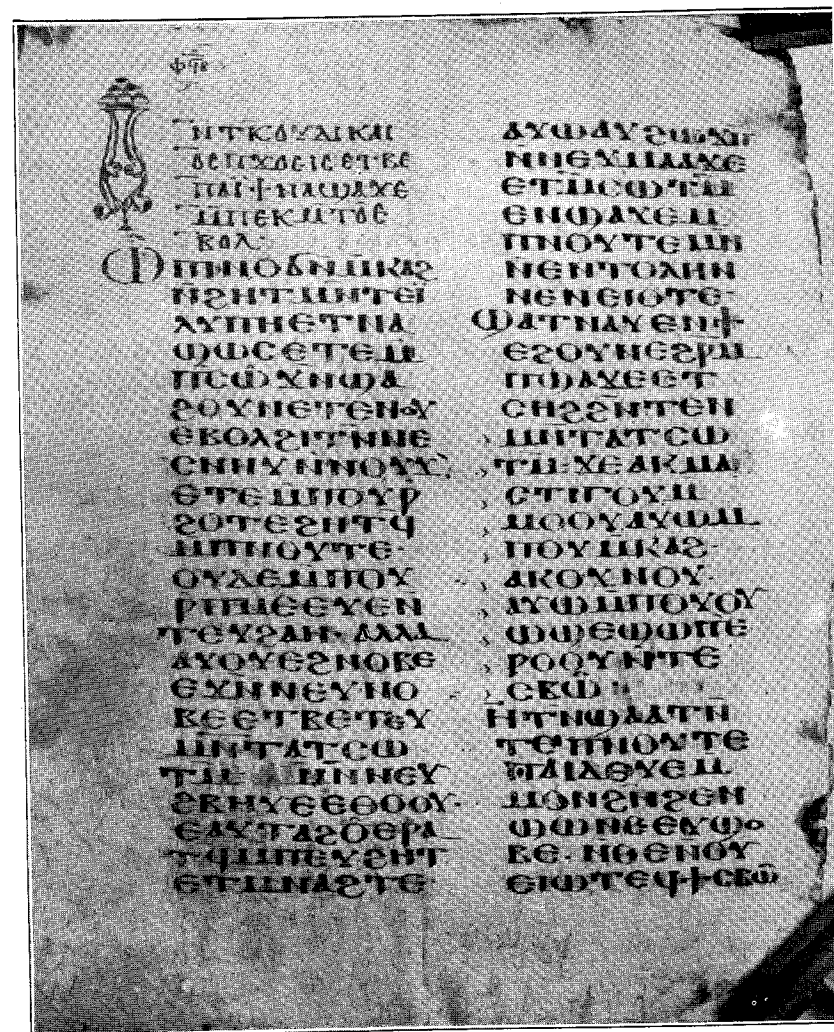 ⲛⲧⲕⲟⲩⲇⲓⲕⲁⲓ
ⲟⲥⲡϫⲟⲉⲓⲥⲉⲧⲃⲉ
ⲡⲁⲓ̈ϯⲛⲁϣⲁϫⲉ
ⲙ̄ⲡⲉⲕⲙ̄ⲧⲟⲉ
ⲃⲟⲗ:
ⲱⲡⲛⲟϭⲛ̄ⲙ̄ⲕⲁϩ
ⲛ̄ϩⲏⲧⲙⲛ̄ⲧⲉⲓ̈
ⲗⲩⲡⲏⲉⲧⲛⲁ
ϣⲱⲥⲉⲧⲉⲙ̄
ⲡⲥⲱϫⲛ̄ϣⲁ
ϩⲟⲩⲛⲉⲧⲉⲛⲟⲩ
ⲉⲃⲟⲗϩⲓⲧⲛ̄ⲛⲉ
ⲥⲛⲏⲩⲛ̄ⲛⲟⲩϫ
ⲉⲧⲉⲙ̄ⲡⲟⲩⲣ̄
ϩⲟⲧⲉϩⲏⲧϥ̄
ⲙ̄ⲡⲛⲟⲩⲧⲉ·
ⲟⲩⲇⲉⲙ̄ⲡⲟⲩ
ⲣ̄ⲡⲙⲉⲉⲩⲉⲛ̄
ⲧⲉⲩϩⲁⲏ· ⲁⲗⲗⲁ
ⲁⲩⲟⲩⲉϩⲛⲟⲃⲉ
ⲉϫⲛ̄ⲛⲉⲩⲛⲟ
ⲃⲉⲉⲧⲃⲉⲧⲉⲩ
ⲙⲛ̄ⲧⲁⲧⲥⲱ
ⲧⲙ̄ ⲙⲛ̄ⲛⲉⲩ
ϩⲃⲏⲩⲉⲉⲑⲟⲟⲩ·
ⲉⲁⲩⲧⲁϩⲟⲉⲣⲁ
ⲧϥ̄ⲙ̄ⲡⲉⲩϩⲏⲧ
ⲉⲧⲙ̄ⲛⲁϩⲧⲉ·
ⲁⲩⲱⲁⲩϩⲱϫⲡ̄
ⲛ̄ⲛⲉⲩⲙⲁⲁϫⲉ
ⲉⲧⲙ̄ⲥⲱⲧⲙ̄
ⲉⲛϣⲁϫⲉⲙ̄
ⲡⲛⲟⲩⲧⲉⲙⲛ̄
ⲛⲉⲛⲧⲟⲗⲏⲛ̄
ⲛⲉⲛⲉⲓⲟⲧⲉ·
ϣⲁⲧⲛⲁⲩⲉⲛϯ
ⲉϩⲟⲩⲛⲉϩⲣⲙ̄
ⲡϣⲁϫⲉⲉⲧ
ⲥⲏϩϩⲛ̄ⲧⲉⲛ
ⲙⲛ̄ⲧⲁⲧⲥⲱ
ⲧⲙ̄·ϫⲉⲁⲕⲙⲁ
ⲥⲧⲓⲅⲟⲩⲙ̄
ⲙⲟⲟⲩⲁⲩⲱⲙ̄
ⲡⲟⲩⲙ̄ⲕⲁϩ·
ⲁⲕⲟϫⲛⲟⲩ·
ⲁⲩⲱⲙ̄ⲡⲟⲩⲟⲩ
ⲱϣⲉϣⲱⲡⲉ
ⲣⲟⲟⲩⲛ̄ⲧⲉ
ⲥⲃⲱ
ⲛ̄ⲧⲛ̄ϣⲁⲁⲧⲛ̄
ⲧⲉⲡⲛⲟⲩⲧⲉ
ⲡⲁⲓⲗⲉⲩⲉⲙ̄
ⲙⲟⲛϩⲛ̄ϩⲉⲛ
ϣⲱⲛⲉⲉⲩϣⲟ
ⲃⲉ·ⲛⲑⲉⲛⲟⲩ
ⲉⲓⲱⲧⲉϥϯⲥⲃⲱ